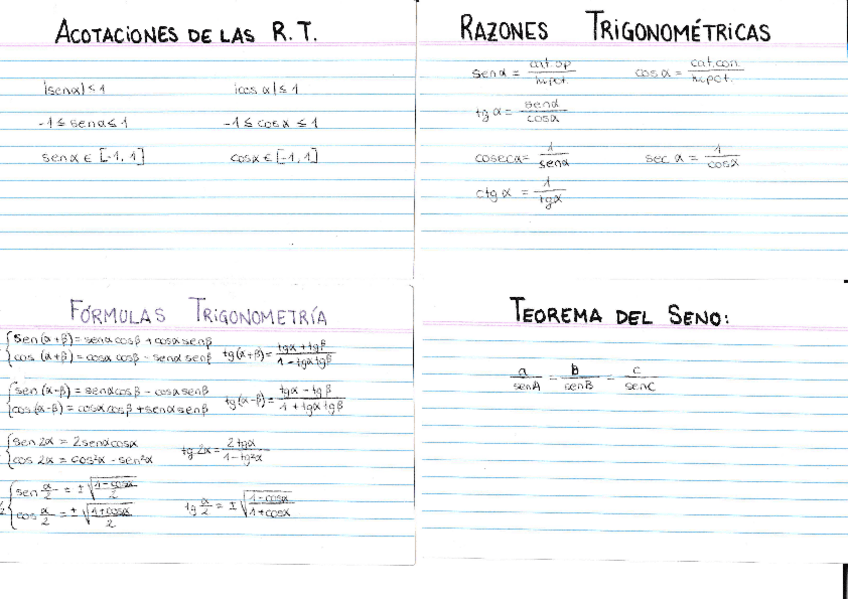 ACOTACIONES DE LAS R.T.
|senα| ≤ 1 |cos α| ≤ 1
-1 ≤ senα ≤ 1 -1 ≤ cosα ≤ 1
senα ∈ [-1, 1] cosα ∈ [-1, 1]
RAZONES TRIGONOMÉTRICAS
senα = cat.op / hipot. cosα = cat.con. / hipot.
tgα = senα / cosα
cosecα = 1 / senα sec α = 1 / cosα
ctgα = 1 / tgα
FÓRMULAS TRIGONOMETRÍA
sen(α+β) = senα cosβ + cosα senβ
cos (α+β) = cosα cosβ - senα senβ tg(α+β) = tgα + tgβ / 1 - tgα tgβ
sen(α-β) = senα cosβ - cosα senβ
cos(α-β) = cosα cosβ + senα senβ tg(α-β) = tgα - tgβ / 1 + tgα tgβ
sen 2α = 2 senα cosα
cos 2α = cos²α - sen²α tg 2α = 2 tgα / 1 - tg²α
sen α/2 = ± √(1 - cosα / 2)
cos α/2 = ± √(1 + cosα / 2) tg α/2 = ± √(1 - cosα / 1 + cosα)
TEOREMA DEL SENO:
a / senA = b / senB = c / senC